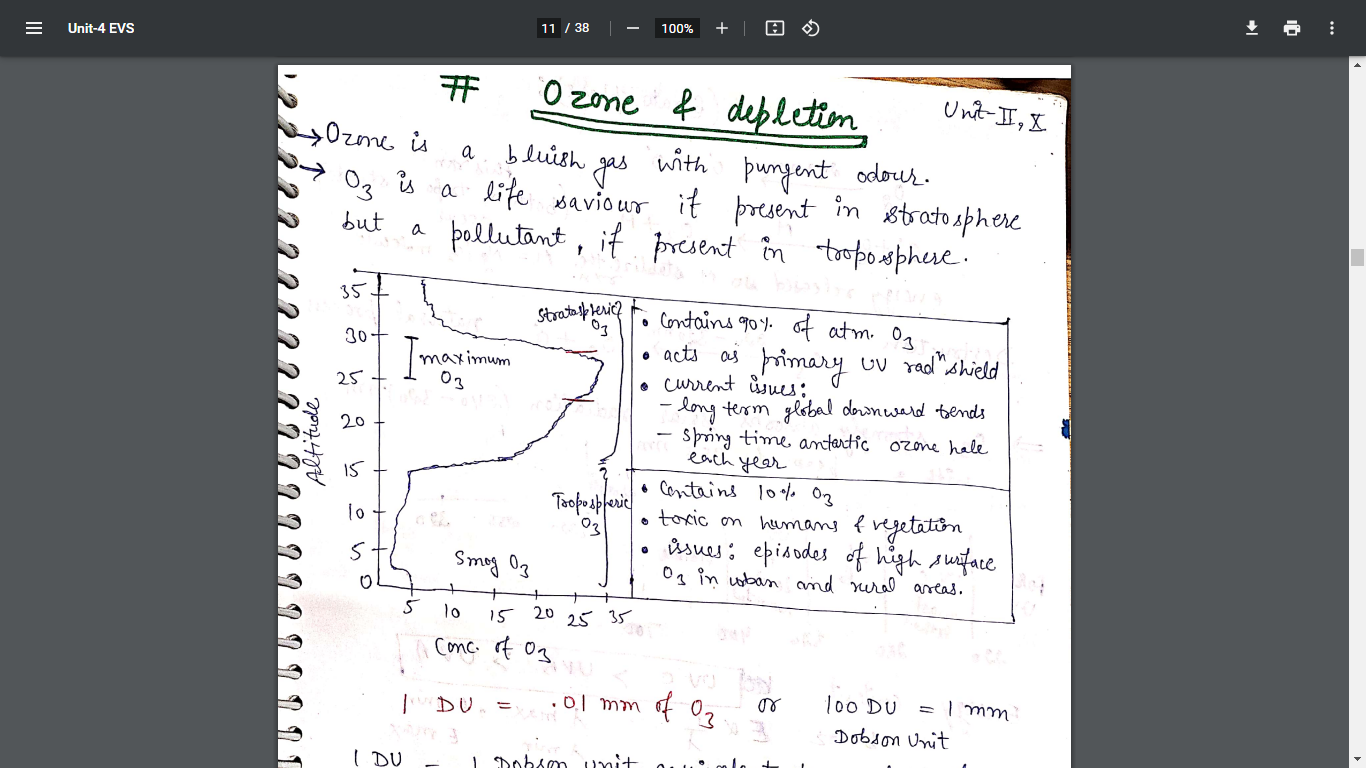 Unit-4 EVS
11 / 38
100%
# Ozone & depletion
Unit-II, X
→Ozone is a bluish gas with pungent odour.
→ O3 is a life saviour if present in stratosphere
but a pollutant, if present in troposphere.
Altitude
35
30
25
20
15
10
5
0
maximum
O3
Stratospheric
O3
Tropospheric
O3
Smog O3
5 10 15 20 25 35
Conc. of O3
• Contains 90% of atm. O3
• acts as primary UV radⁿ shield
• current issues:
– long term global downward tends
– Spring time antartic ozone hole
each year
• Contains 10% O3
• toxic on humans & vegetation
• issues: episodes of high surface
O3 in urban and rural areas.
1 DU = .01 mm of O3 or 100 DU = 1 mm
Dobson Unit
1 DU = 1 Dobson unit